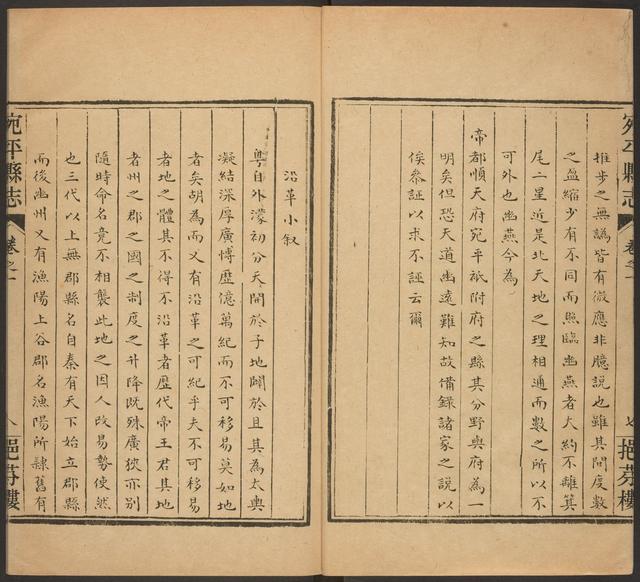 宛平縣志
卷之一
七
挹芬樓
推步之無譌皆有徵應非臆説也雖其間度數
之盈縮少有不同而照臨幽燕者大約不離箕
尾二星近是北天地之理相通而數之所以不
可外也幽燕今為
帝都順天府宛平祇附府之縣其分野與府為一
明矣但恐天道幽遠難知故備錄諸家之説以
俟叅証以求不誣云爾
沿革小敘
粤自外濛初分天開於子地闢於丑其為太輿
凝結深厚廣愽歷億萬紀而不可移易莫如地
者矣胡為而又有沿革之可紀乎夫不可移易
者地之體其不得不沿革者歷代帝王君其地
者州之郡之國之制度之升降既殊廣狹亦別
隨時命名竟不相襲此地之因人改易勢使然
也三代以上無郡縣名自秦有天下始立郡縣
而後幽州又有漁陽上谷郡名漁陽所隸舊有
宛平縣志
卷之一
八
挹芬樓